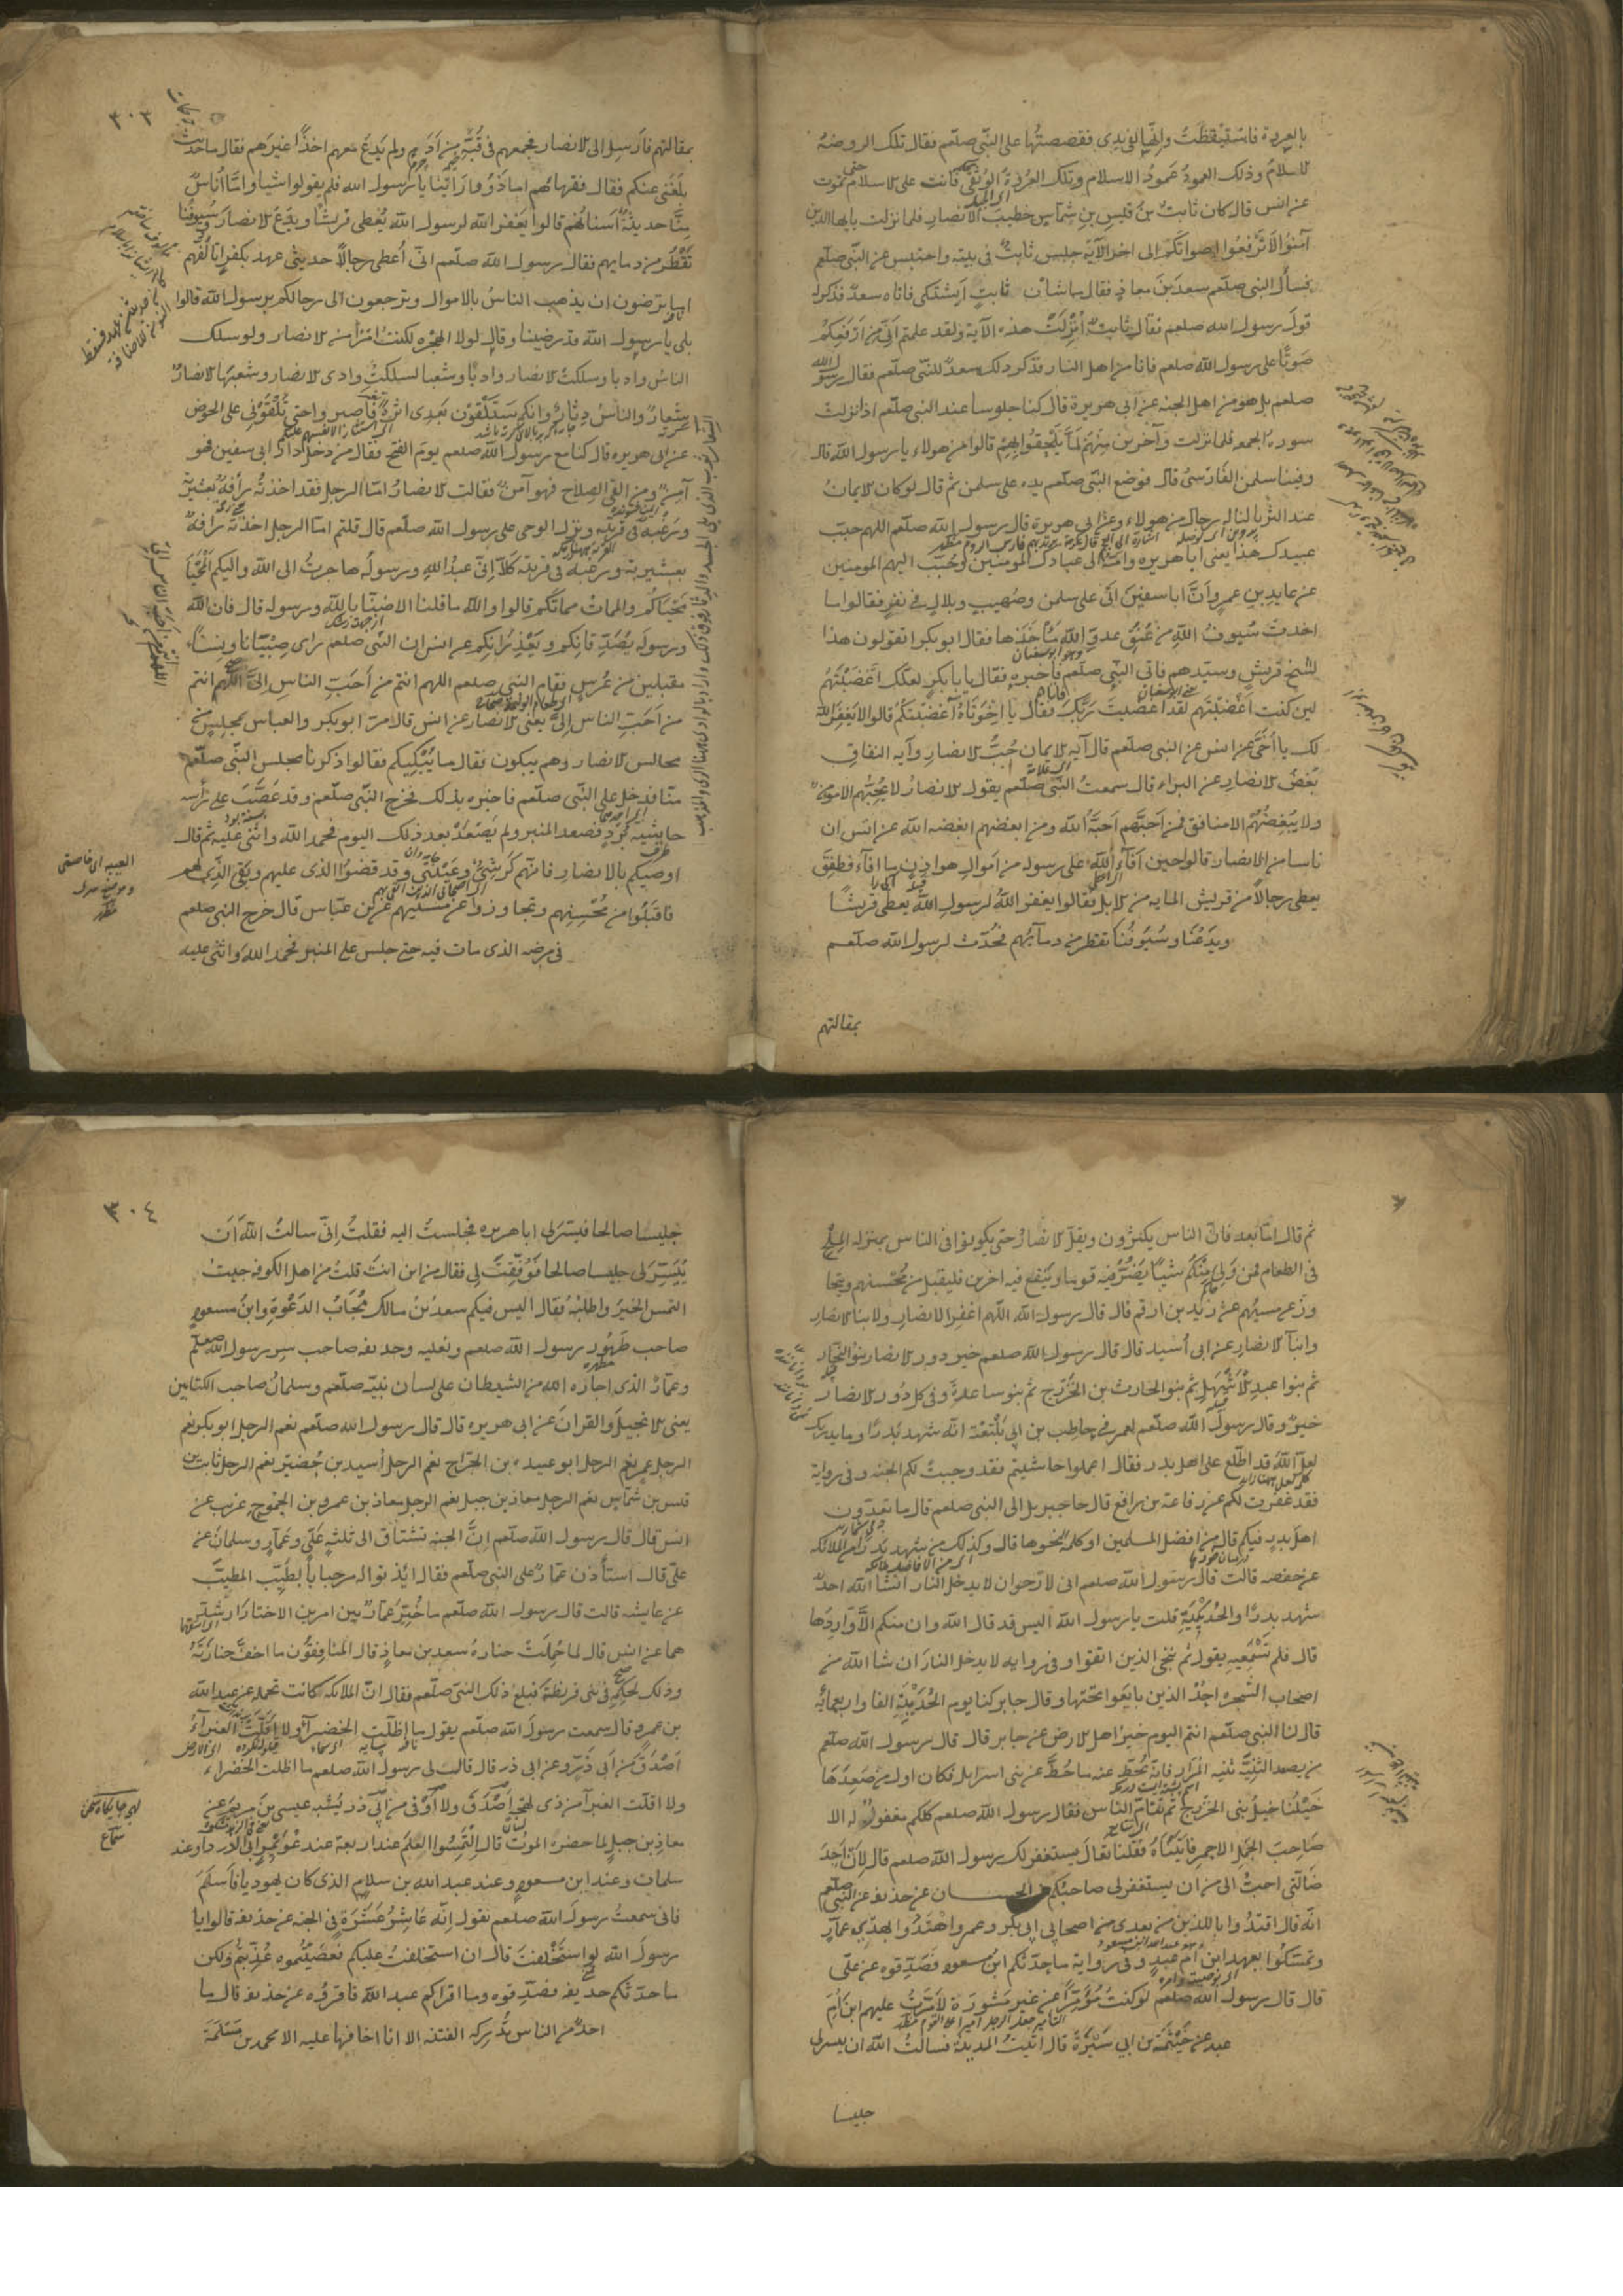 بالعروة فاستيقظت وانها لفي يدي فقصصتها على النبي صلعم فقال تلك الروضة
الاسلام وذلك العمود عمود الاسلام وتلك العروة الوثقى فانت على الاسلام حتى تموت
عن انس قال كان ثابت بن قيس بن شماس خطيب الانصار فلما نزلت يا ايها الذين
آمنوا لا ترفعوا اصواتكم الى اخر الآية جلس ثابت في بيته واحتبس عن النبي صلعم
فسأل النبي صلعم سعد بن معاذ فقال ما شان ثابت ايشتكى فاتاه سعد فذكر له
قول رسول الله صلعم فقال ثابت انزلت هذه الآية ولقد علمتم اني من ارفعكم
صوتا على رسول الله صلعم فانا من اهل النار فذكر ذلك سعد للنبي صلعم فقال رسول الله
صلعم بل هو من اهل الجنه عن ابي هريرة قال كنا جلوسا عند النبي صلعم اذ نزلت
سورة الجمعه فلما نزلت وآخرين منهم لما يلحقوا بهم قالوا من هولاء يا رسول الله قال
وفينا سلمن الفارسي قال فوضع النبي صلعم يده على سلمن ثم قال لو كان الايمان
عند الثريا لناله رجال من هولاء وعن ابي هريرة قال رسول الله صلعم اللهم حبب
عبيدك هذا يعنى ابا هريره وامه الى عبادك المومنين وحبب اليهم المومنين
عن عايد بن عمرو ان ابا سفين اتى على سلمن وصهيب وبلال في نفر فقالوا ما
اخذت سيوف الله من عنق عدو الله مأخذها فقال ابو بكر اتقولون هذا
لشيخ قريش وسيدهم فاتى النبي صلعم فاخبره فقال يا بابكر لعلك اغضبتهم
لين كنت اغضبتهم لقد اغضبت ربك فقال يا اخوتاه اغضبتكم قالوا لا يغفر الله
لك يا أخي عن انس عن النبي صلعم قال آية الايمان حب الانصار وآية النفاق
بغض الانصار عن البراء قال سمعت النبي صلعم يقول الانصار لا يحبهم الا مومن
ولا يبغضهم الا منافق فمن احبهم احبه الله ومن ابغضهم ابغضه الله عن انس ان
ناسا من الانصار قالوا حين افآء الله على رسوله من اموال هوازن ما افآء فطفق
يعطى رجالا من قريش المايه من الابل فقالوا يغفر الله لرسول الله يعطى قريشا
ويدعنا وسيوفنا تقطر من دمآيهم فحدث لرسول الله صلعم
بمقالتهم
٣٠٣
بمقالتهم فارسل الى الانصار فجمعهم في قبة من ادم ولم يدع معهم احدا غيرهم فقال ما حديث
بلغنى عنكم فقال فقهاؤهم اما ذوو راينا يا رسول الله فلم يقولوا شيا واما اناس
منا حديثة اسنانهم قالوا يغفر الله لرسول الله يعطى قريشا ويدع الانصار وسيوفنا
تقطر من دمايهم فقال رسول الله صلعم اني أعطى رجالا حديثى عهد بكفر اتالفهم
اما ترضون ان يذهب الناس بالاموال وترجعون الى رحالكم برسول الله قالوا
بلى يا رسول الله قد رضينا وقال لولا الهجرة لكنت امرأ من الانصار ولو سلك
الناس واديا وسلكت الانصار واديا وشعبا لسلكت وادى الانصار وشعبها الانصار
شعار والناس دثار وانكم ستلقون بعدى اثرة فاصبروا حتى تلقوني على الحوض
عن ابى هريره قال كنا مع رسول الله صلعم يوم الفتح فقال من دخل دار ابى سفين فهو
آمن ومن القى السلاح فهو آمن فقالت الانصار اما الرجل فقد اخذته رأفة بعشيرته
ورغبة في قريته ونزل الوحى على رسول الله صلعم قال قلتم اما الرجل اخذته رأفة
بعشيرته ورغبة في قريته كلا انى عبد الله ورسوله هاجرت الى الله واليكم المحيا
محياكم والممات مماتكم قالوا والله ما قلنا الا ضنا بالله ورسوله قال فان الله
ورسوله يصدقانكم ويعذرانكم عن انس ان النبي صلعم راى صبيانا ونساء
مقبلين من عرس فقام النبي صلعم اللهم انتم من أحب الناس الى اللهم انتم
من احب الناس الى يعنى الانصار عن انس قال مر ابو بكر والعباس بمجلس من
مجالس الانصار وهم يبكون فقال ما يبكيكم فقالوا ذكرنا مجلس النبي صلعم
منا فدخل على النبي صلعم فاخبره بذلك فخرج النبي صلعم وقد عصب على رأسه
حاشية برد فصعد المنبر ولم يصعد بعد ذلك اليوم فحمد الله واثنى عليه ثم قال
اوصيكم بالانصار فانهم كرشى وعيبتى وقد قضوا الذى عليهم وبقى الذى لهم
فاقبلوا من محسنهم وتجاوزوا عن مسيئهم عن ابن عباس قال خرج النبي صلعم
فى مرضه الذى مات فيه حتى جلس على المنبر فحمد الله واثنى عليه
ثم قال اما بعد فان الناس يكثرون ويقل الانصار حتى يكونوا فى الناس بمنزلة الملح
فى الطعام فمن ولى منكم شيئا يضر فيه قوما وينفع فيه اخرين فليقبل من محسنهم ويتجا
وز عن مسيئهم عن زيد بن ارقم قال قال رسول الله اللهم اغفر للانصار ولابنا الانصار
وابنآ الانصار عن ابى أسيد قال قال رسول الله صلعم خير دور الانصار بنو النجار
ثم بنوا عبد الاشهل ثم بنو الحارث بن الخزرج ثم بنو ساعدة وفى كل دور الانصار
خير وقال رسول الله صلعم لعمر في حاطب بن ابى بلتعة انه شهد بدرا وما يدريك
لعل الله قد اطلع على اهل بدر فقال اعملوا ما شيتم فقد وجبت لكم الجنه وفى رواية
فقد غفرت لكم عن رفاعة بن رافع قال جا جبريل الى النبى صلعم قال ما تعدون
اهل بدر فيكم قال من افضل المسلمين او كلمة نحوها قال وكذلك من شهد بدرا من الملائكه
عن حفصه قالت قال رسول الله صلعم انى لارجوا ان لا يدخل النار انشا الله احد
شهد بدرا والحديبية قلت يا رسول الله اليس قد قال الله وان منكم الا واردها
قال فلم تسمعيه يقول ثم ننجى الذين اتقوا وفى روايه لا يدخل النار ان شا الله من
اصحاب الشجره احد الذين بايعوا تحتها وقال جابر كنا يوم الحديبية الفا واربعمائه
قال لنا النبى صلعم انتم اليوم خير اهل الارض عن جابر قال قال رسول الله صلعم
من يصعد الثنية ثنيه المرار فانه يحط عنه ما حط عن بنى اسرايل فكان اول من صعدها
خيلنا خيل بنى الخزرج ثم تتام الناس فقال رسول الله صلعم كلكم مغفور له الا
صاحب الجمل الاحمر فاتيناه فقلنا تعال يستغفر لك رسول الله صلعم قال لان اجد
ضالتى احب الى من ان يستغفر لى صاحبكم من الحسان عن حذيفه عن النبى صلعم
انه قال اقتدوا بالذين من بعدى من اصحابى ابى بكر وعمر واهتدوا بهدى عمار
وتمسكوا بعهد ابن ام عبد وفى رواية ما حدثكم ابن مسعود فصدقوه عن على
قال قال رسول الله صلعم لو كنت مؤمرا عن غير مشورة لامرت عليهم ابن أم
عبد عن خيثمة بن ابى سبرة قال اتيت المدينة فسالت الله ان ييسر لى
جليسا
٣٠٤
جليسا صالحا فيسر لى ابا هريره فجلست اليه فقلت انى سالت الله ان
ييسر لى جليسا صالحا فوفقت لى فقال من اين انت قلت من اهل الكوفه جيت
التمس الخير واطلبه فقال اليس فيكم سعد بن مالك مجاب الدعوة وابن مسعود
صاحب طهور رسول الله صلعم ونعليه وحذيفه صاحب سر رسول الله صلعم
وعمار الذى اجاره الله من الشيطان على لسان نبيه صلعم وسلمان صاحب الكتابين
يعنى الانجيل والقران عن ابى هريره قال قال رسول الله صلعم نعم الرجل ابو بكر نعم
الرجل عمر نعم الرجل ابو عبيده بن الجراح نعم الرجل أسيد بن حضير نعم الرجل ثابت بن
قيس بن شماس نعم الرجل معاذ بن جبل نعم الرجل معاذ بن عمرو بن الجموح غريب عن
انس قال قال رسول الله صلعم ان الجنه تشتاق الى ثلثه على وعمار وسلمان عن
على قال استأذن عمار على النبى صلعم فقال ائذنوا له مرحبا بالطيب المطيب
عن عايشه قالت قال رسول الله صلعم ما خير عمار بين امرين الا اختار ارشد
هما عن انس قال لما حملت جنازه سعد بن معاذ قال المنافقون ما اخف جنازته
وذلك لحكمه فى بنى قريظة فبلغ ذلك النبى صلعم فقال ان الملائكه كانت تحمله عن عبد الله
بن عمرو قال سمعت رسول الله صلعم يقول ما اظلت الخضرآء ولا اقلت الغبرآء
اصدق من ابى ذر وعن ابى ذر قال قال لى رسول الله صلعم ما اظلت الخضراء
ولا اقلت الغبرآ من ذى لهجة اصدق ولا اوفى من ابى ذر يشبه عيسى بن مريم عن
معاذ بن جبل لما حضره الموت قال التمسوا العلم عند اربعة عند عويمر ابى الدرداء وعند
سلمان وعند ابن مسعود وعند عبد الله بن سلام الذى كان يهوديا فاسلم
فانى سمعت رسول الله صلعم يقول انه عاشر عشرة فى الجنه عن حذيفه قالوا يا
رسول الله لو استخلفت قال ان استخلفت عليكم فعصيتموه عذبتم ولكن
ما حدثكم حذيفه فصدقوه وما اقراكم عبد الله فاقرؤه عن حذيفه قال ما
احد من الناس تدركه الفتنه الا انا اخافها عليه الا محمد بن مسلمة